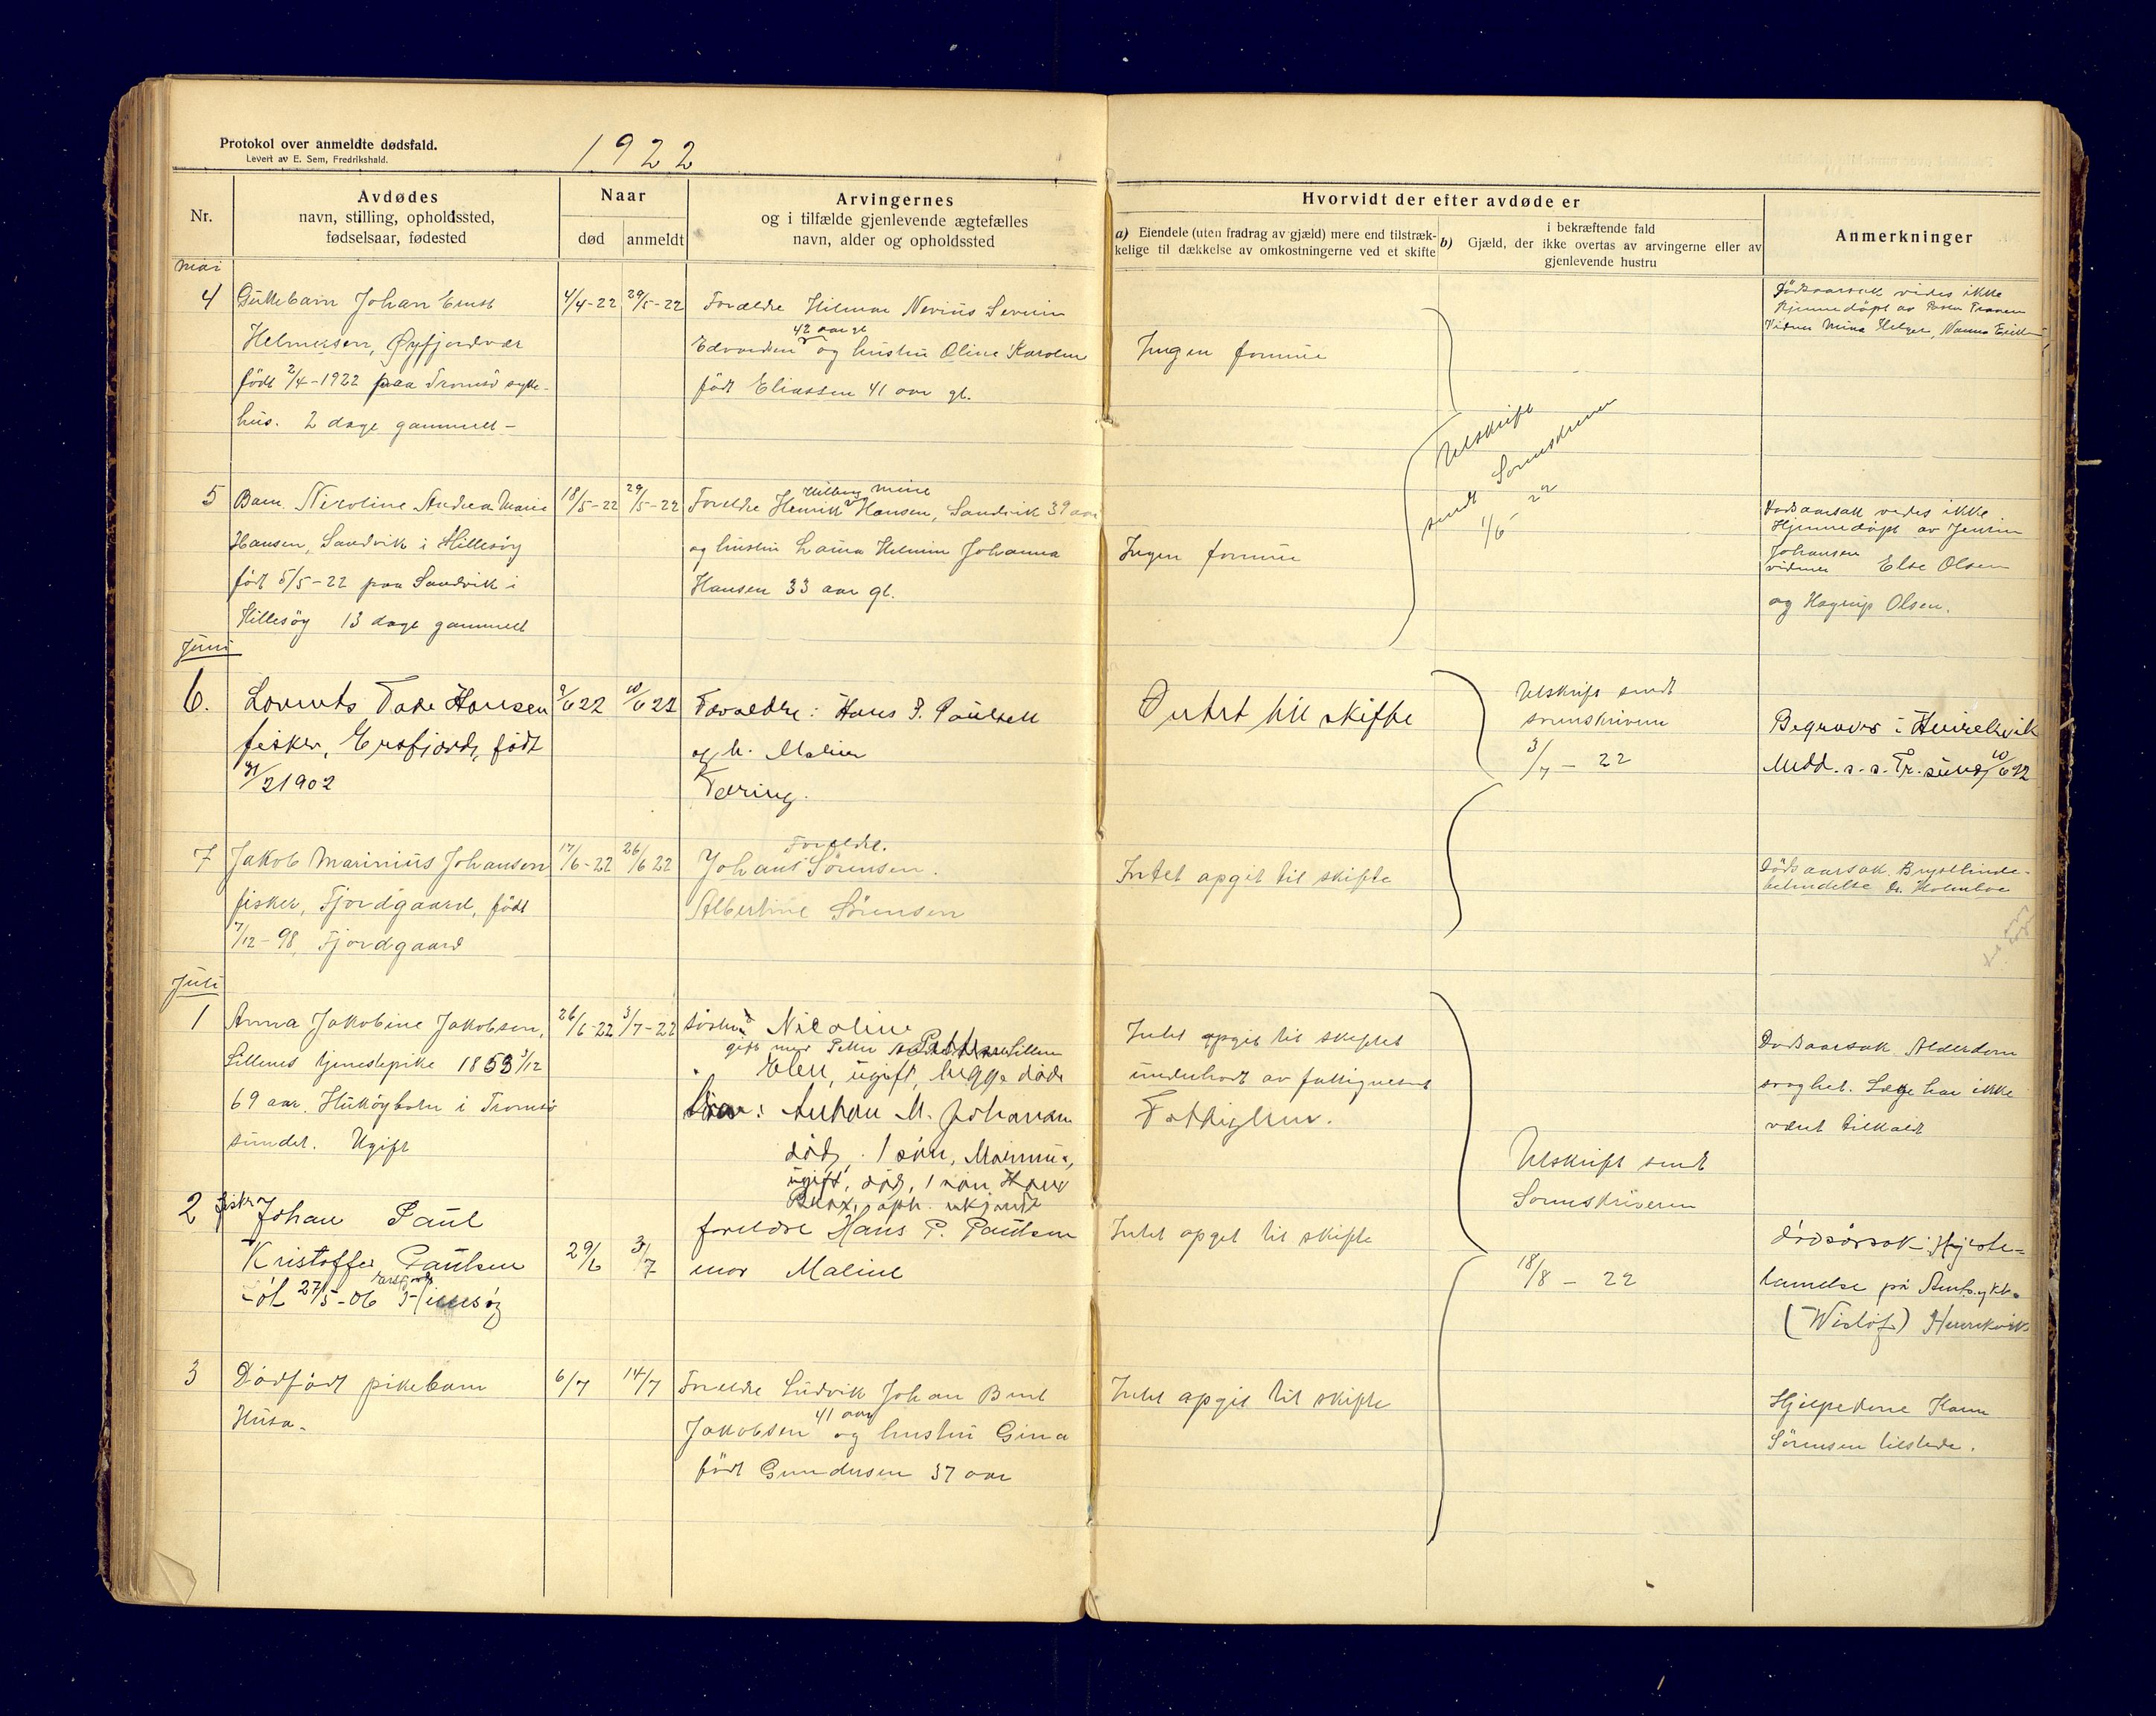 Protokol over anmeldte dødsfald.
Levert av E. Sem, Fredrikshald.
1922
Nr.
Avdødes
navn, stilling, opholdssted,
fødselsaar, fødested
Naar
død
anmeldt
Arvingernes
og i tilfælde gjenlevende ægtefælles
navn, alder og opholdssted
Hvorvidt der efter avdøde er
a) Eiendele (uten fradrag av gjæld) mere end tilstræk-
kelige til dækkelse av omkostningerne ved et skifte
b)
i bekræftende fald
Gjæld, der ikke overtas av arvingerne eller av
gjenlevende hustru
Anmerkninger
Mai
4
Guttebarn Johan Ernst
Helmersen, Øyfjordvær
født 2/4-1922 paa Tromsö syke-
hus. 2 dage gammelt -
4/4-22
29/5-22
Forældre Hilmar Nerius Severin
42 aar gl
Edvardsen og hustru Oline Karoline
født Eliassen 41 aar gl.
Ingen formue
Dödsaarsak vides ikke
Hjemmedöpt av
Vidner Mina Helger, Nanna
5
Barn Nicoline Andrea Marie
Hansen, Sandvik i Hillesöy
födt 5/5-22 paa Sandvik i
Hillesöy 13 dage gammelt
18/5-22
29/5-22
Hilberg Meier
Foreldre Henrik Hansen, Sandvik 39 aar
og hustru Laura Helmine Johanna
Hansen 33 aar gl.
Ingen formue
Utskrift
sendt Sorenskriveren
1/6-22
Dödsaarsak vides ikke
Hjemmedöpt av
Johansen
vidner Else Olsen
og Hagrup Olsen.
Juni
6.
Lorents Tore Hansen
fisker, Ersfjord, født
31/2 1902
9/6 22
10/6 22
Forældre: Hans P. Paulsen
og h. Maline
Tæring.
Intet til skifte
Utskrift sendt
sorenskriveren
3/7 - 22
Begraves i Henrikvik
Medd. s. s. Tr. sund 10/6 22
7
Jakob Marinius Johansen
fisker, Fjordgaard, födt
7/12-98, Fjordgaard
17/6-22
26/6 22
Foreldre.
Johans Sörensen.
Albertine Sörensen
Intet opgit til skifte
Dödsaarsak Brysthinde-
betendelse Dr. Holmboe
Juli
1
Anna Jakobine Jakobsen,
Sillenes tjenestepike 1853 3/12
69 aar. Huköybotn i Tromsö
sundet. Ugift
26/6-22
3/7-22
Nicoline
gift med Petter
Elen, ugift, begge döde
Bror: Anton M. Johansen
död, 1 sön,
ugift, död, 1 sön Hans
oph. ukjendt
Intet opgit til skiftet
underholdt av fattigvesenet
Fattighus.
Utskrift sendt
Sorenskriveren
18/8 - 22
Dödsaarsak Alderdom
svaghet. Læge har ikke
vært tilkaldt
2
fisker Johan Paul
Kristoffer Paulsen
föt 27/5-06 Ersfjord Hillesöy
29/6
3/7
foreldre Hans P. Paulsen
mor Maline
Intet opget til skifte
dödsårsak: Hjerte-
lamelse på Amtssykh.
(Wislöf) Henrikvik
3
Dödfödt pikebarn
Husa.
6/7
14/7
Foreldre Ludvik Johan Bent
Jakobsen 41 aar og hustru Gina
födt Gundersen 37 aar
Intet opgit til skifte
Hjelpekone Karen
Sörensen tilstede.